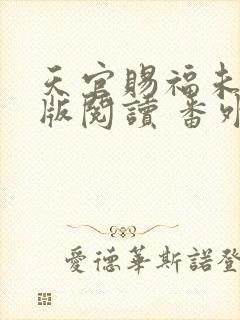 天官賜福未
版閱讀 番外
愛德華斯諾登